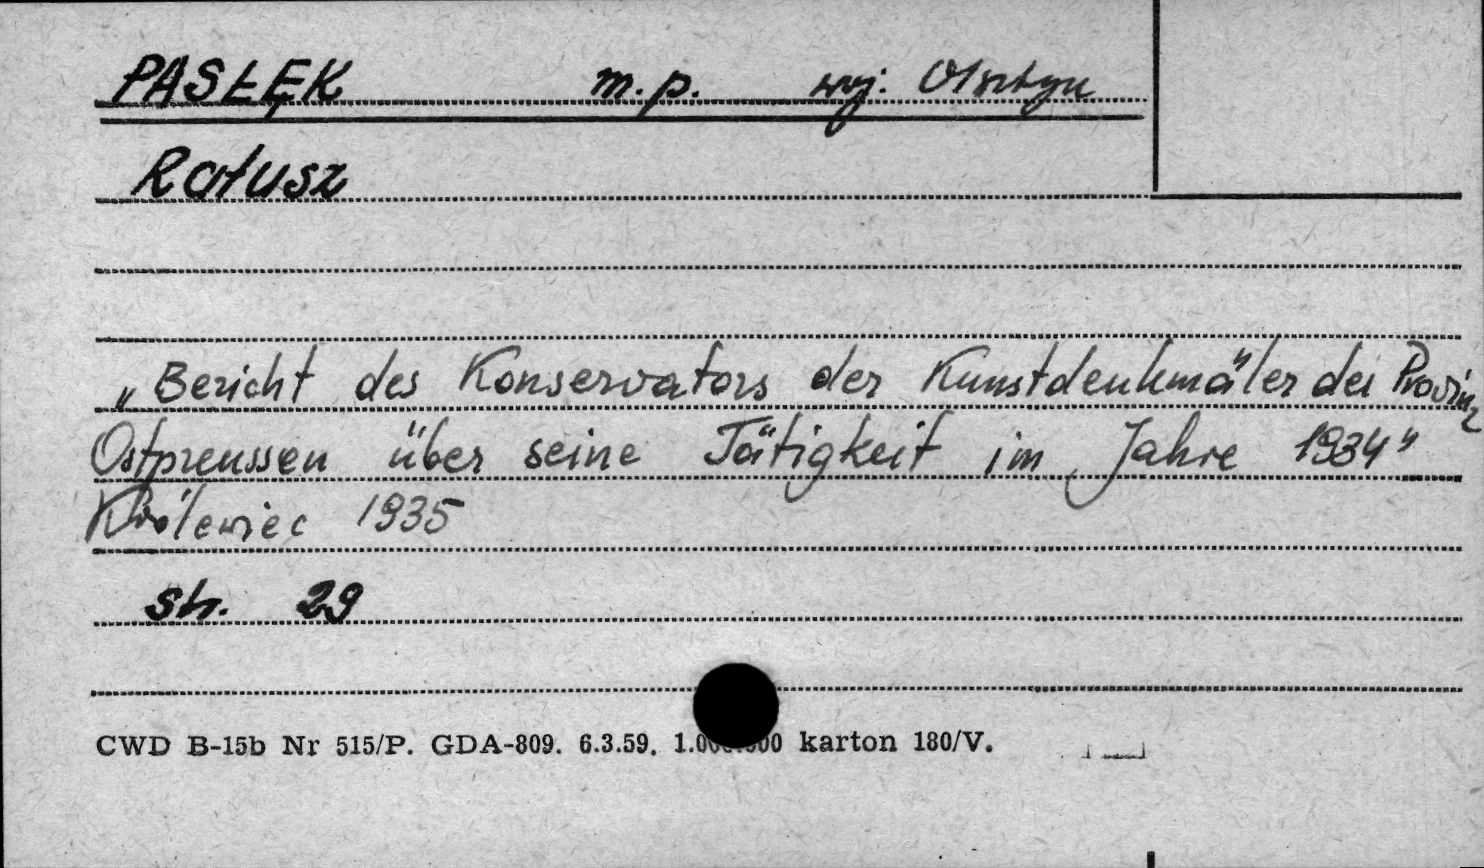 PASŁĘK m.p. woj. Olsztyn
Ratusz
„Bericht des Konservators der Kunstdenkmäler der Provinz
Ostpreussen über seine Tätigkeit im Jahre 1934"
Królewiec 1935
str. 29
CWD B-15b Nr 515/P. GDA-809. 6.3.59. 1.000.000 karton 180/V.